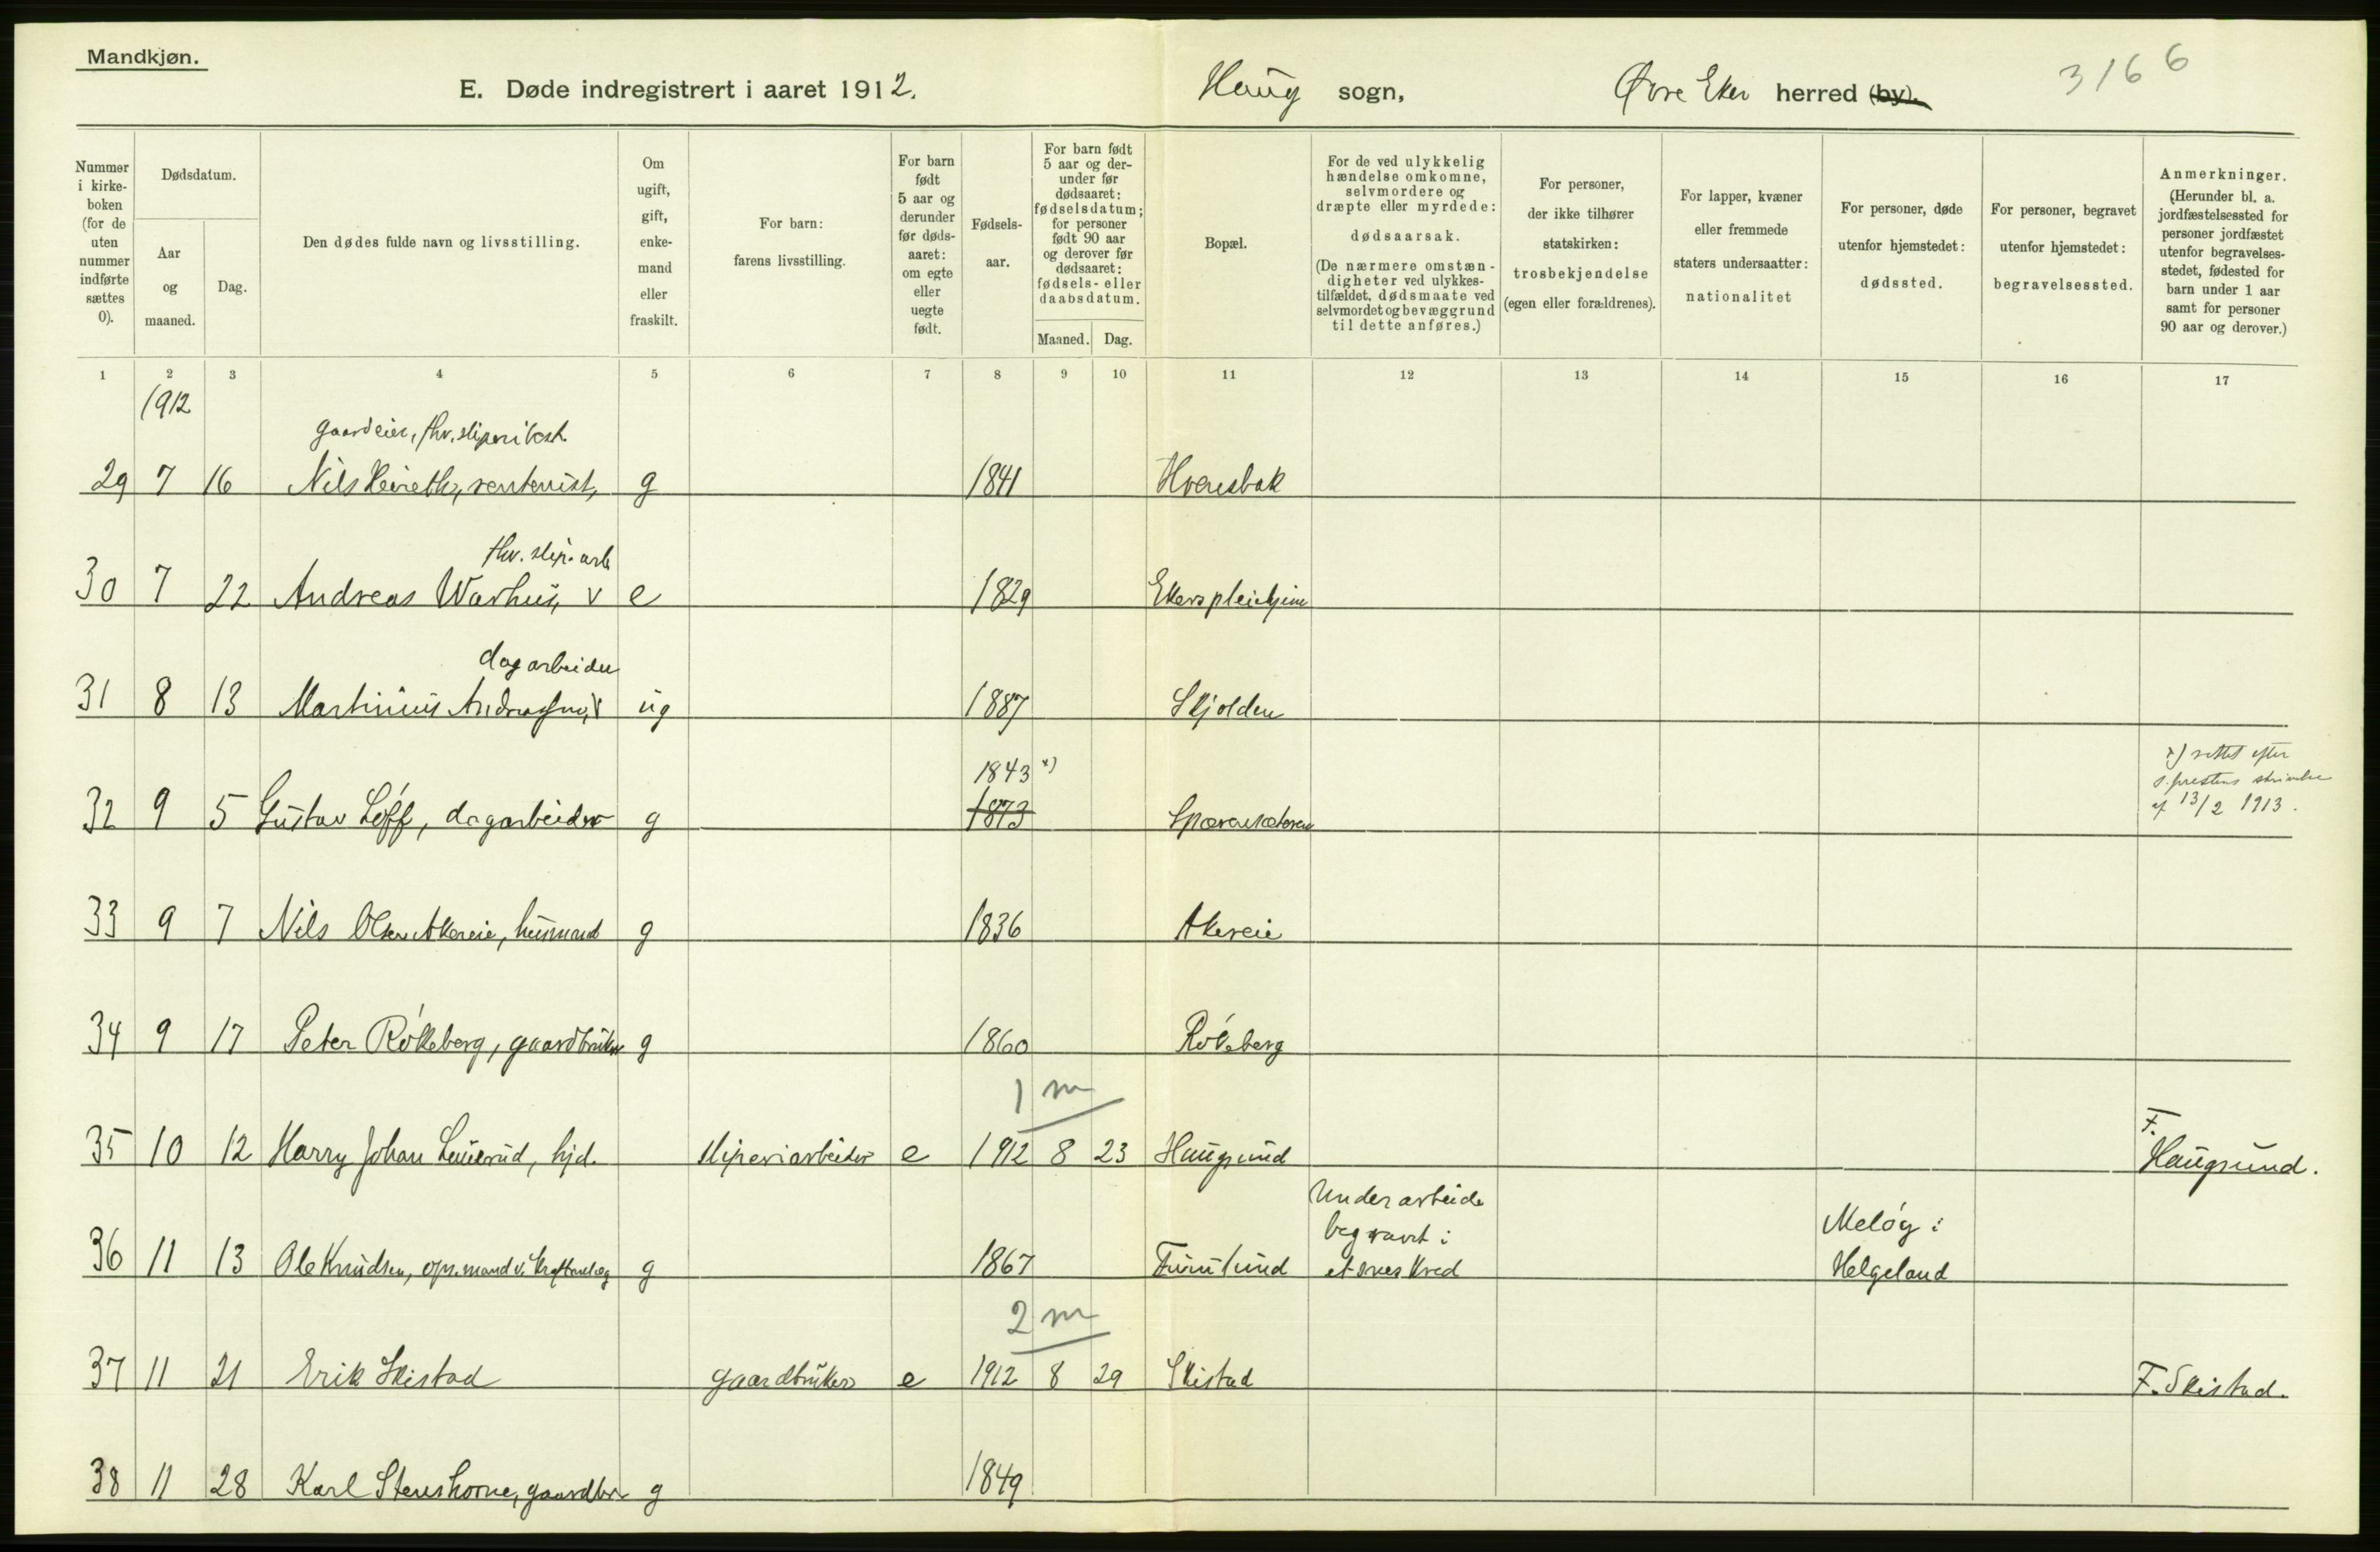 Mandkjøn.
E. Døde indregistrert i aaret 1912.
Haug sogn,
Øvre Eker herred (by).
3166
Nummer i kirke-boken (for de uten nummer indførte sættes 0).
Dødsdatum.
Aar og maaned.
Dag.
Den dødes fulde navn og livsstilling.
Om ugift, gift, enke-mand eller fraskilt.
For barn: farens livsstilling.
For barn født 5 aar og derunder før døds-aaret: om egte eller uegte født.
Fødsels-aar.
For barn født 5 aar og der-under før dødsaaret: fødselsdatum; for personer født 90 aar og derover før dødsaaret: fødsels- eller daabsdatum.
Maaned.
Dag.
Bopæl.
For de ved ulykkelig hændelse omkomne, selvmordere og dræpte eller myrdede: dødsaarsak. (De nærmere omstæn-digheter ved ulykkes-tilfældet, dødsmaate ved selvmordet og bevæggrund til dette anføres.)
For personer, der ikke tilhører statskirken: trosbekjendelse (egen eller forældrenes).
For lapper, kvæner eller fremmede staters undersaatter: nationalitet
For personer, døde utenfor hjemstedet: dødssted.
For personer, begravet utenfor hjemstedet: begravelsessted.
Anmerkninger. (Herunder bl. a. jordfæstelsessted for personer jordfæstet utenfor begravelses-stedet, fødested for barn under 1 aar samt for personer 90 aar og derover.)
1 2 3 4 5 6 7 8 9 10 11 12 13 14 15 16 17
1912
gaardeier, fhv. sliperibest.
29 7 16 Nils, rentenist, g 1841 Hvensbak
fhv. slip. arb
30 7 22 Andreas Warhus, v e 1829 Ekers pleiehjem
dagarbeider
31 8 13 Martinius Andreassen, v ug 1887 Skjolden
1843 x)
x) rettet efter
s. prestens skrivelse
af 13/2 1913.
32 9 5 Gustav Löff, dagarbeider g 1873
33 9 7 Nils Olsen Akereie, husmand g 1836 Akereie
34 9 17 Peter Rökeberg, gaardbruker g 1860 Rökeberg
1 m
F.
35 10 12 Harry Johan, hjd. sliperiarbeider e 1912 8 23 Haugsund Haugsund.
Under arbeide
begravet i Meløy i
36 11 13 Ole Knudsen, ops.mand v. kraftanlæg g 1867 et sneskred Helgeland
2 m
37 11 21 Erik Skistad gaardbruker e 1912 8 29 Skistad F. Skistad.
38 11 28 Karl Stenshorne, gaardbr g 1849